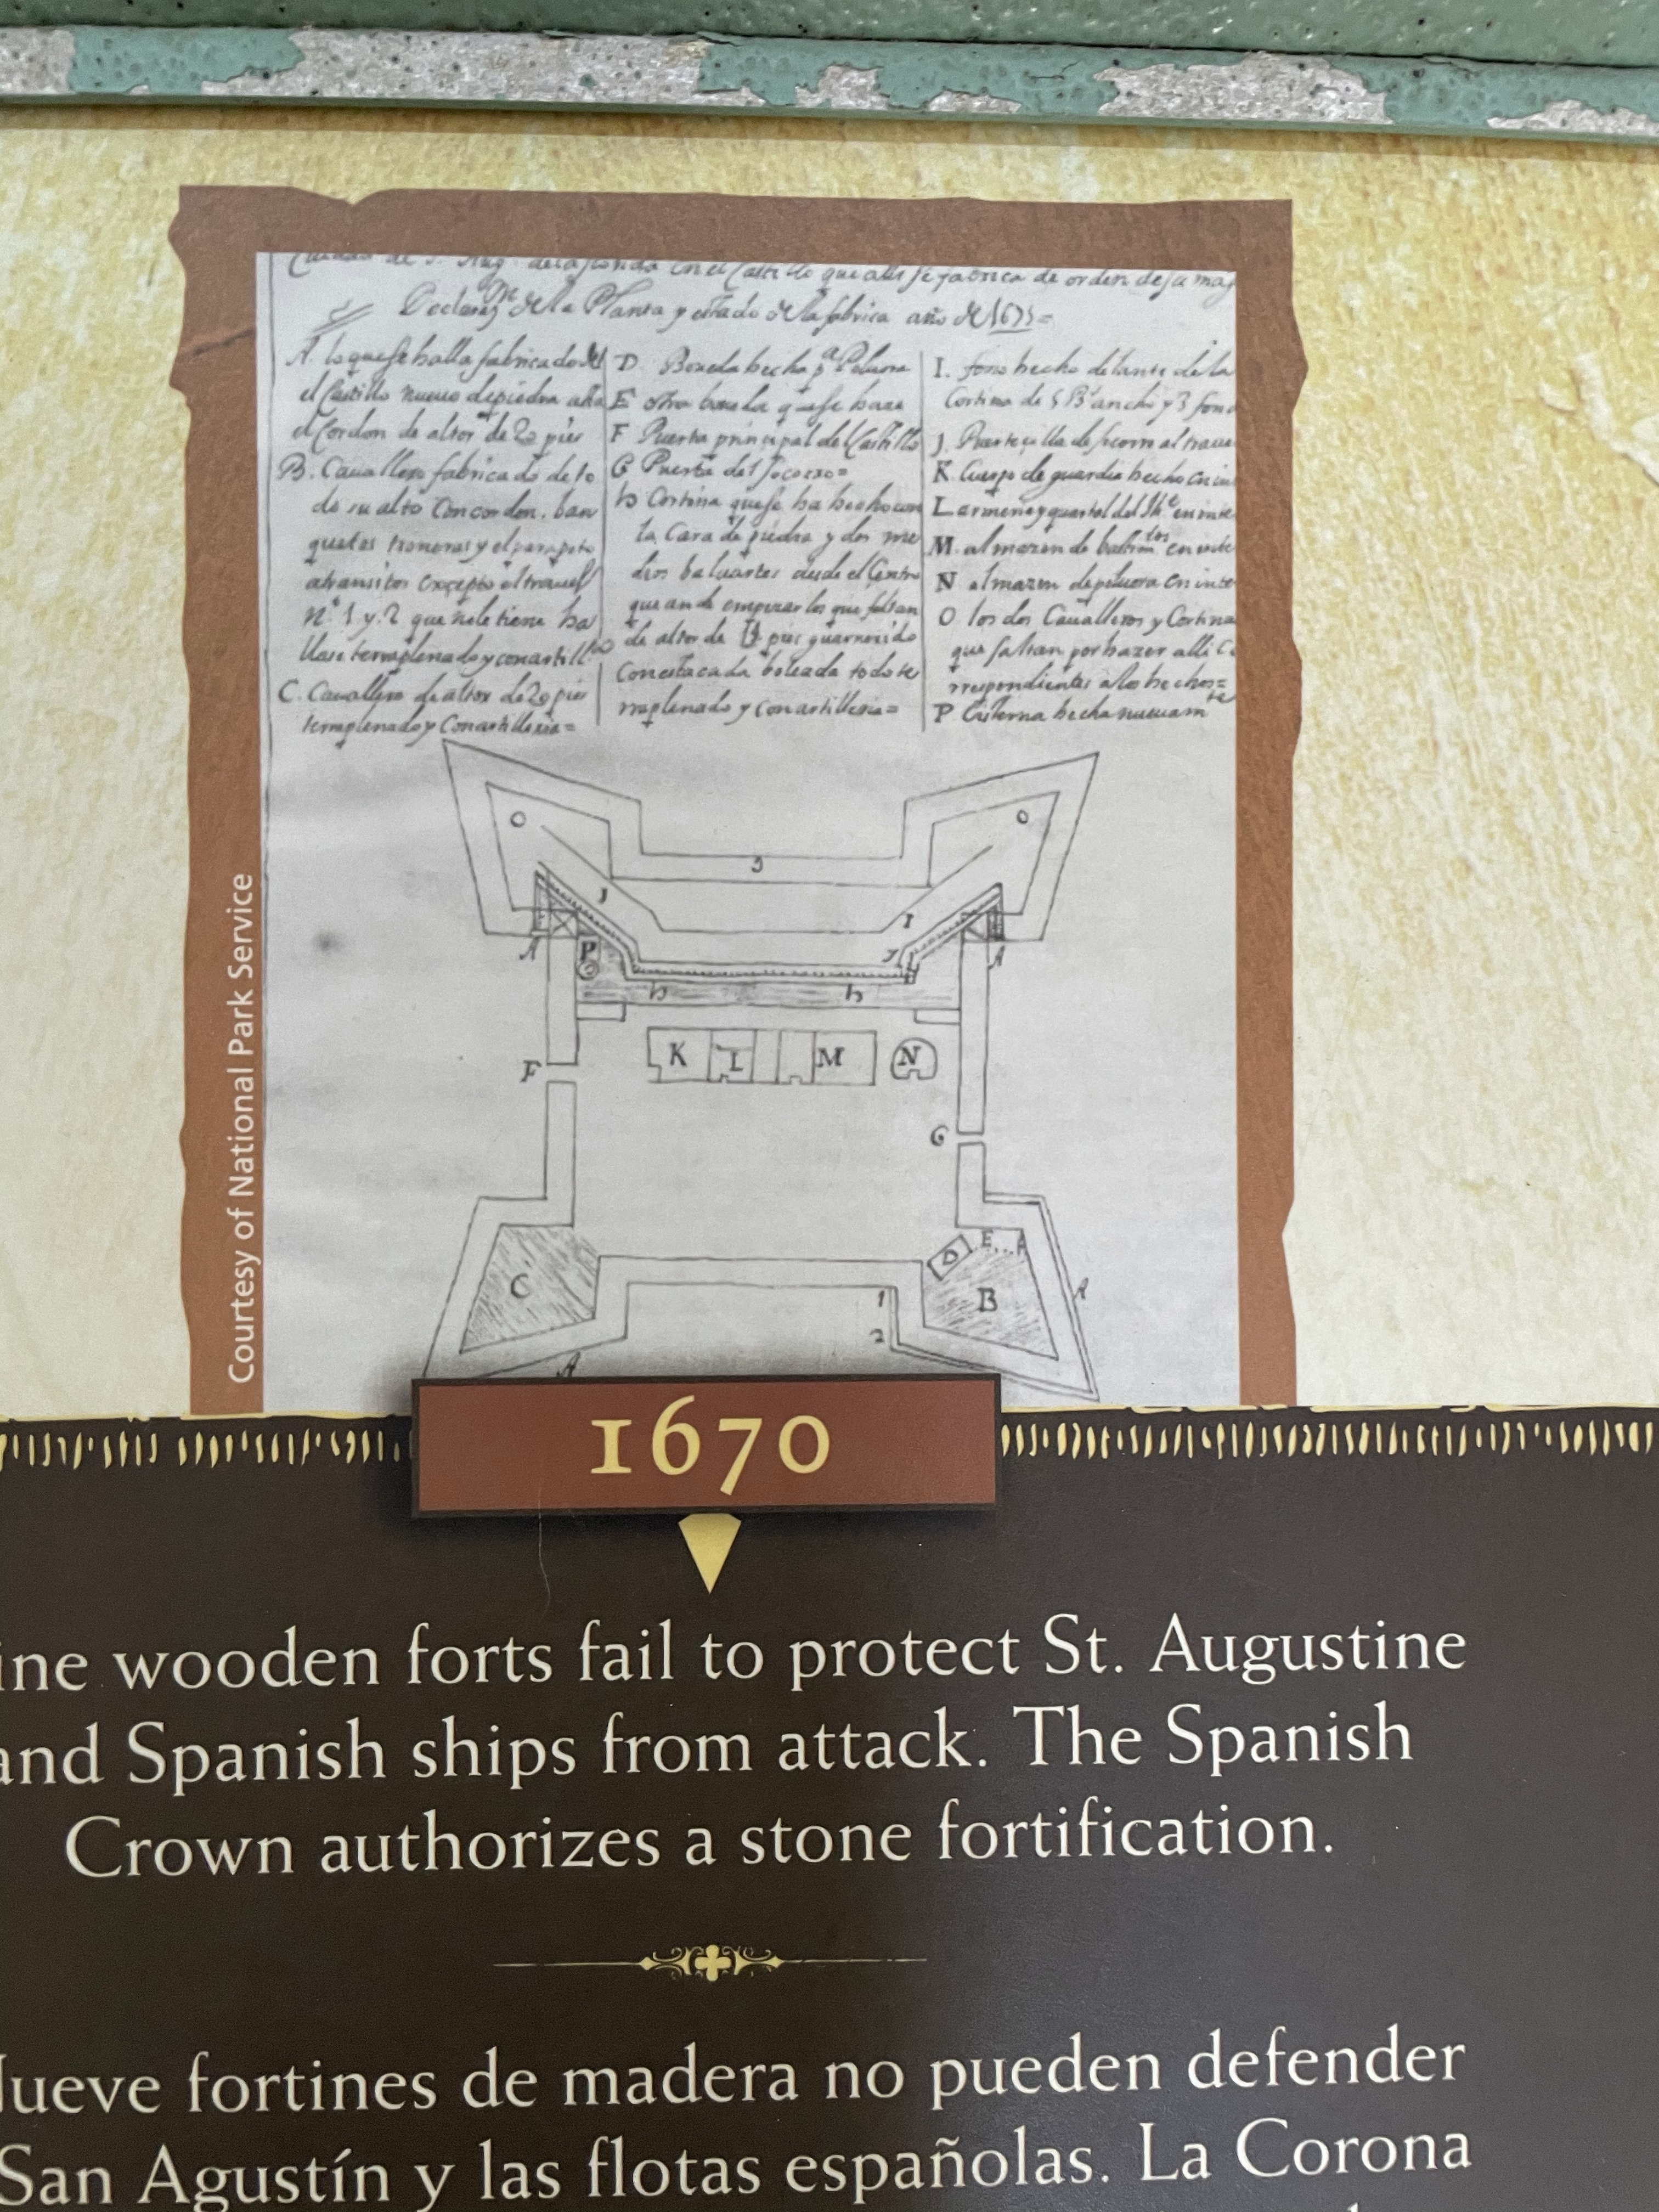 Declaraz.on de la Planta y estado de la fabrica año de 1675=
A. lo que se halla fabricado del
el Castillo nuevo de piedra
el Cordon de altor de 20 pies
B. Cauallero fabricado de to
do su alto Con cordon, ban
quetas troneras y el parapeto
atransitos excepto el traues
n.º 1 y 2 que nole tiene ha
llase terraplenado y con artill.
C. Cauallero de altor de 20 pies
terraplenado y Con artilleria=
D. Boueda hecha p.ª Poluora
E otra boueda que se haze
F Puerta principal del Castillo
G Puerta del Socorro=
h Cortina que se ha hecho con
la Cara de piedra y dos me
dios baluartes desde el Centro
que an de empezar los que faltan
de altor de pies guarnecido
Con estacada todo te
rraplenado y con artilleria=
I. foso hecho delante de la
Cortina de ancho y 3 fond
J. de Socorro al traue
K. Cuerpo de guardia hecho
L y quartel del
M. almazen de
N almazen de poluora en inte
O los dos Caualleros y Cortina
que faltan por hazer alli C
rrespondientes a los hechos=
P Cisterna hecha nueuam.te
O
O
J
J
I
A
P
A
h
h
K
L
M
N
F
G
C
D
E
A
B
A
1
2
A
Courtesy of National Park Service
1670
ine wooden forts fail to protect St. Augustine
and Spanish ships from attack. The Spanish
Crown authorizes a stone fortification.
Nueve fortines de madera no pueden defender
San Agustín y las flotas españolas. La Corona